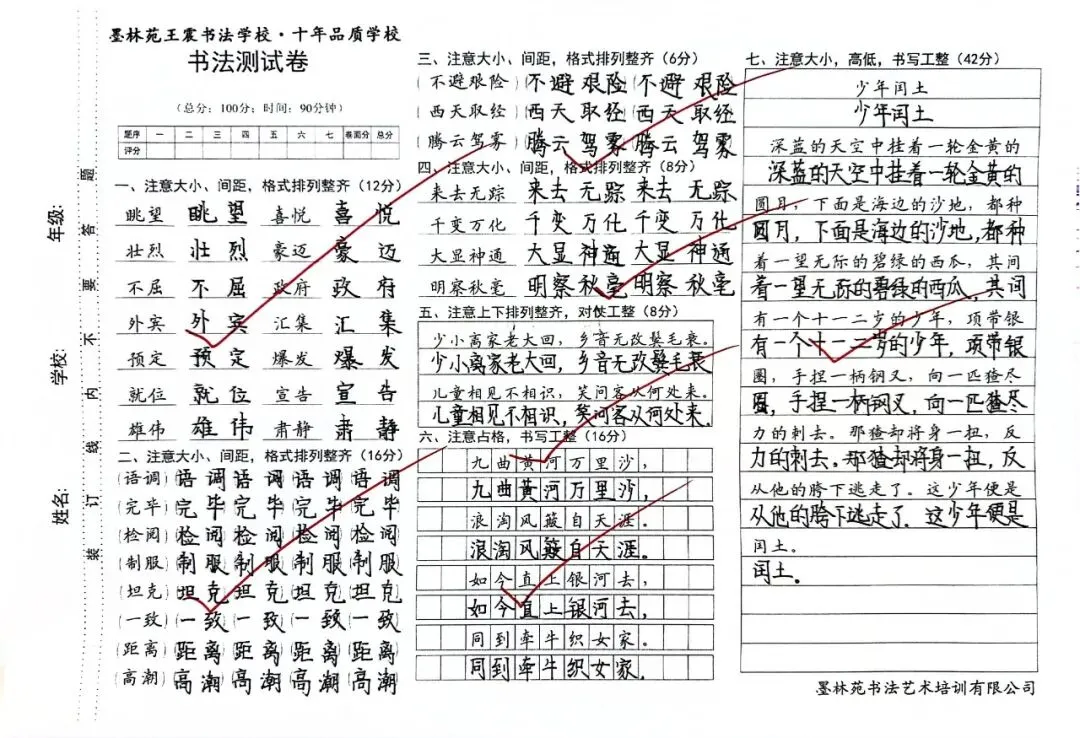 墨林苑王震书法学校·十年品质学校
书法测试卷
(总分:100分;时间:90分钟)
题序 一 二 三 四 五 六 七 卷面分 总分
评分
年级:
学校:
姓名:
装 订 线 内 不 要 答 题
一、注意大小、间距,格式排列整齐(12分)
眺望 眺望 喜悦 喜悦
壮烈 壮烈 豪迈 豪迈
不屈 不屈 政府 政府
外宾 外宾 汇集 汇集
预定 预定 爆发 爆发
就位 就位 宣告 宣告
雄伟 雄伟 肃静 肃静
二、注意大小、间距,格式排列整齐(16分)
(语调)(语调)(语调)(语调)
(完毕)(完毕)(完毕)(完毕)
(检阅)(检阅)(检阅)(检阅)
(制服)(制服)(制服)(制服)
(坦克)(坦克)(坦克)(坦克)
(一致)(一致)(一致)(一致)
(距离)(距离)(距离)(距离)
(高潮)(高潮)(高潮)(高潮)
三、注意大小、间距,格式排列整齐(6分)
(不避艰险)(不避艰险)(不避艰险)
(西天取经)(西天取经)(西天取经)
(腾云驾雾)(腾云驾雾)(腾云驾雾)
四、注意大小、间距,格式排列整齐(8分)
来去无踪 来去无踪 来去无踪
千变万化 千变万化 千变万化
大显神通 大显神通 大显神通
明察秋毫 明察秋毫 明察秋毫
五、注意上下排列整齐,对仗工整(8分)
少小离家老大回,乡音无改鬓毛衰。
少小离家老大回,乡音无改鬓毛衰
儿童相见不相识,笑问客从何处来。
儿童相见不相识,笑问客从何处来.
六、注意占格,书写工整(16分)
九曲黄河万里沙,
九曲黄河万里沙,
浪淘风簸自天涯。
浪淘风簸自天涯.
如今直上银河去,
如今直上银河去,
同到牵牛织女家。
同到牵牛织女家.
七、注意大小,高低,书写工整(42分)
少年闰土
少年闰土
深蓝的天空中挂着一轮金黄的
深蓝的天空中挂着一轮金黄的
圆月,下面是海边的沙地,都种
圆月,下面是海边的沙地,都种
着一望无际的碧绿的西瓜,其间
着一望无际的碧绿的西瓜,其间
有一个十一二岁的少年,项带银
有一个十一二岁的少年,项带银
圈,手捏一柄钢叉,向一匹猹尽
圈,手捏一柄钢叉,向一匹猹尽
力的刺去。那猹却将身一扭,反
力的刺去.那猹却将身一扭,反
从他的胯下逃走了。这少年便是
从他的胯下逃走了.这少年便是
闰土。
闰土.
墨林苑书法艺术培训有限公司